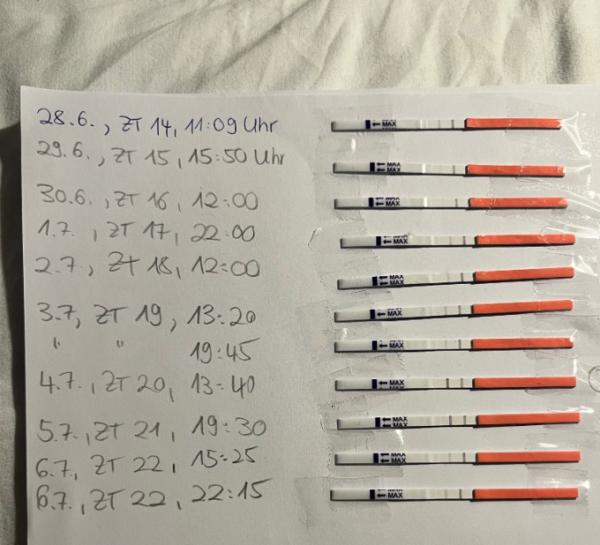 28.6., ZT 14, 11:09 Uhr
29.6., ZT 15, 15:50 Uhr
30.6., ZT 16, 12:00
1.7., ZT 17, 22:00
2.7., ZT 18, 12:00
3.7, ZT 19, 13:20
" " 19:45
4.7., ZT 20, 13:40
5.7., ZT 21, 19:30
6.7, ZT 22, 15:25
6.7., ZT 22, 22:15
MAX
MAX
MAX
MAX
MAX
MAX
MAX
MAX
MAX
MAX
MAX
MAX
MAX